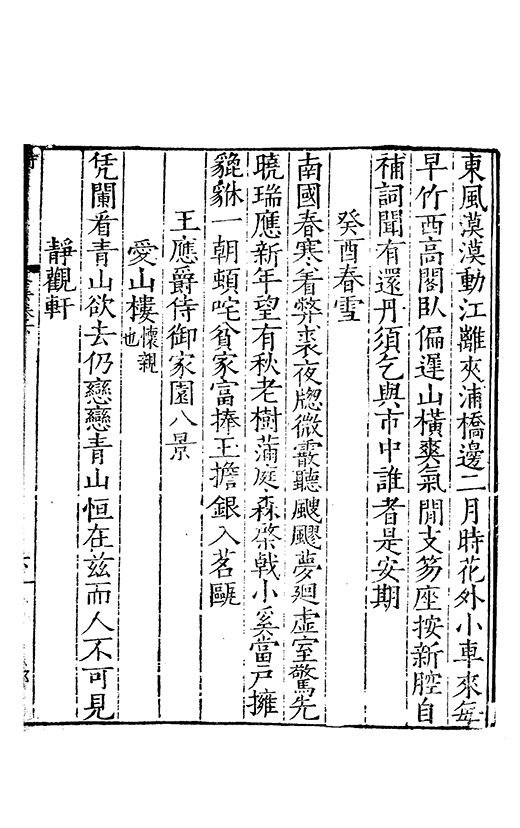 東風漠漠動江離夾浦橋邊二月時花外小車來每
早竹西高閣臥偏遲山橫爽氣閒支笏座按新腔自
補詞聞有還丹須乞與市中誰者是安期
癸酉春雪
南國春寒著弊裘夜牕微霰聽颼飀夢廻虛室驚先
曉瑞應新年望有秋老樹蒲庭森棨戟小奚當戶擁
貔貅一朝頓咤貧家富捧王擔銀入茗甌
王應爵侍御家園八景
愛山樓懷親也
凭闌看青山欲去仍戀戀青山恒在兹而人不可見
靜觀軒